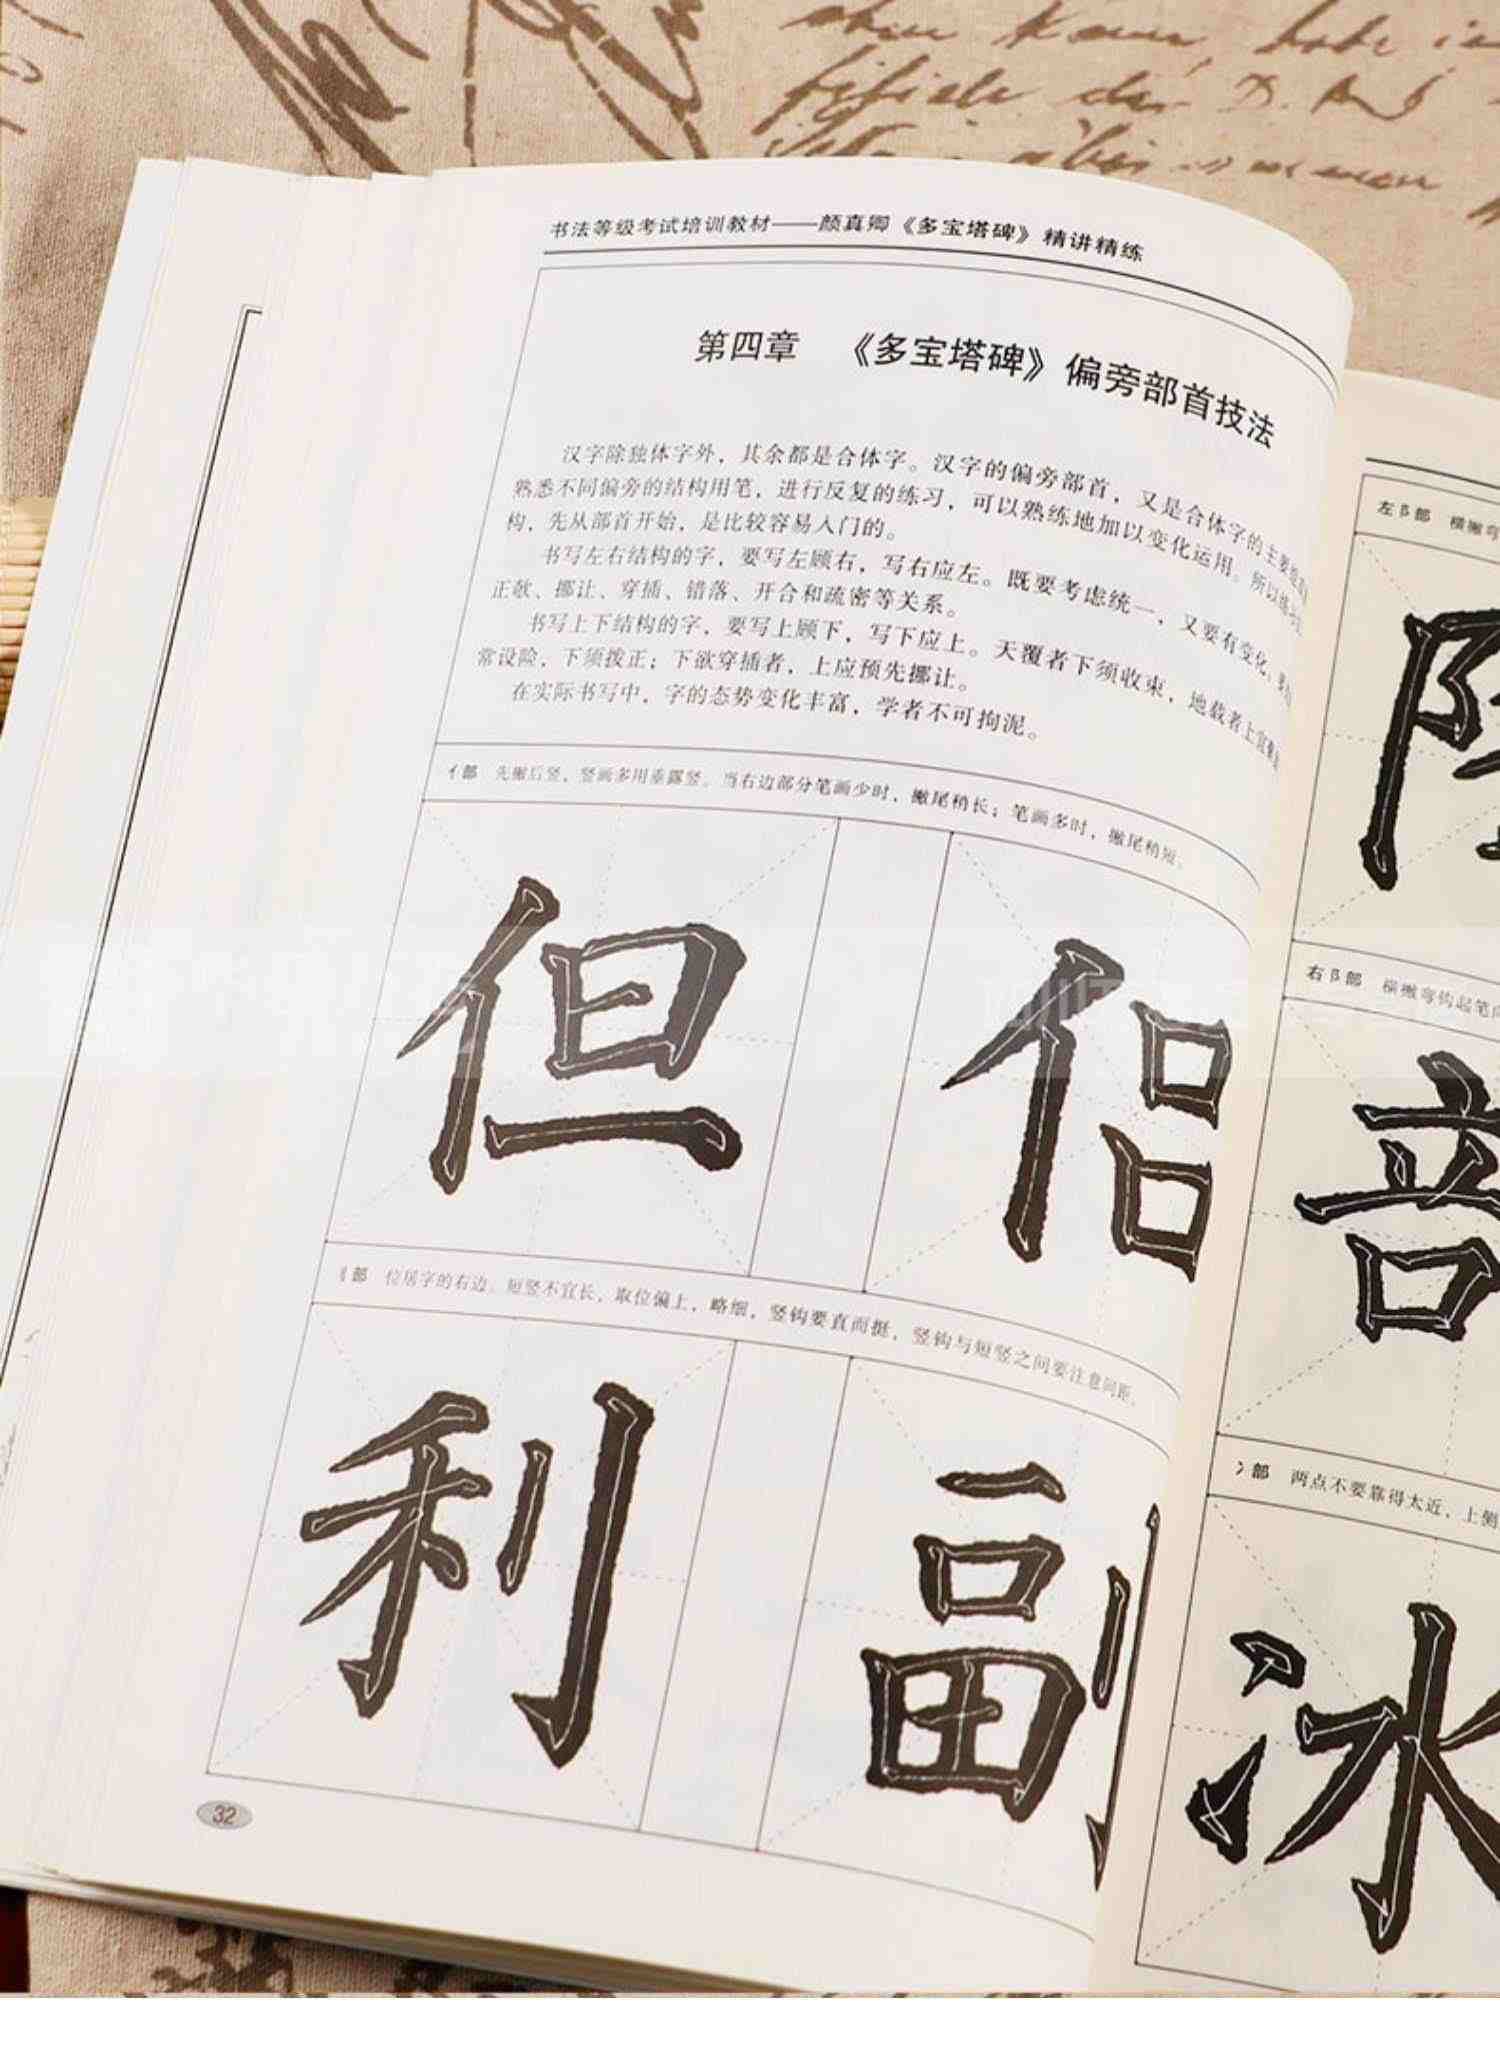 书法等级考试培训教材——颜真卿《多宝塔碑》精讲精练
第四章 《多宝塔碑》偏旁部首技法
汉字除独体字外，其余都是合体字。汉字的偏旁部首，又是合体字的主要
熟悉不同偏旁的结构用笔，进行反复的练习，可以熟练地加以变化运用。所以练习
构，先从部首开始，是比较容易入门的。
书写左右结构的字，要写左顾右，写右应左。既要考虑统一，又要有变化，
正欹、挪让、穿插、错落、开合和疏密等关系。
书写上下结构的字，要写上顾下，写下应上。天覆者下须收束，地载者上宜
常设险，下须拨正；下欲穿插者，上应预先挪让。
在实际书写中，字的态势变化丰富，学者不可拘泥。
亻部 先撇后竖，竖画多用垂露竖。当右边部分笔画少时，撇尾稍长；笔画多时，撇尾稍短。
但 侣
刂部 位居字的右边。短竖不宜长，取位偏上，略细，竖钩要直而挺，竖钩与短竖之间要注意间距。
利 副
32
左阝部 横撇弯
右阝部 横撇弯钩起笔向
冫部 两点不要靠得太近，上侧
冰